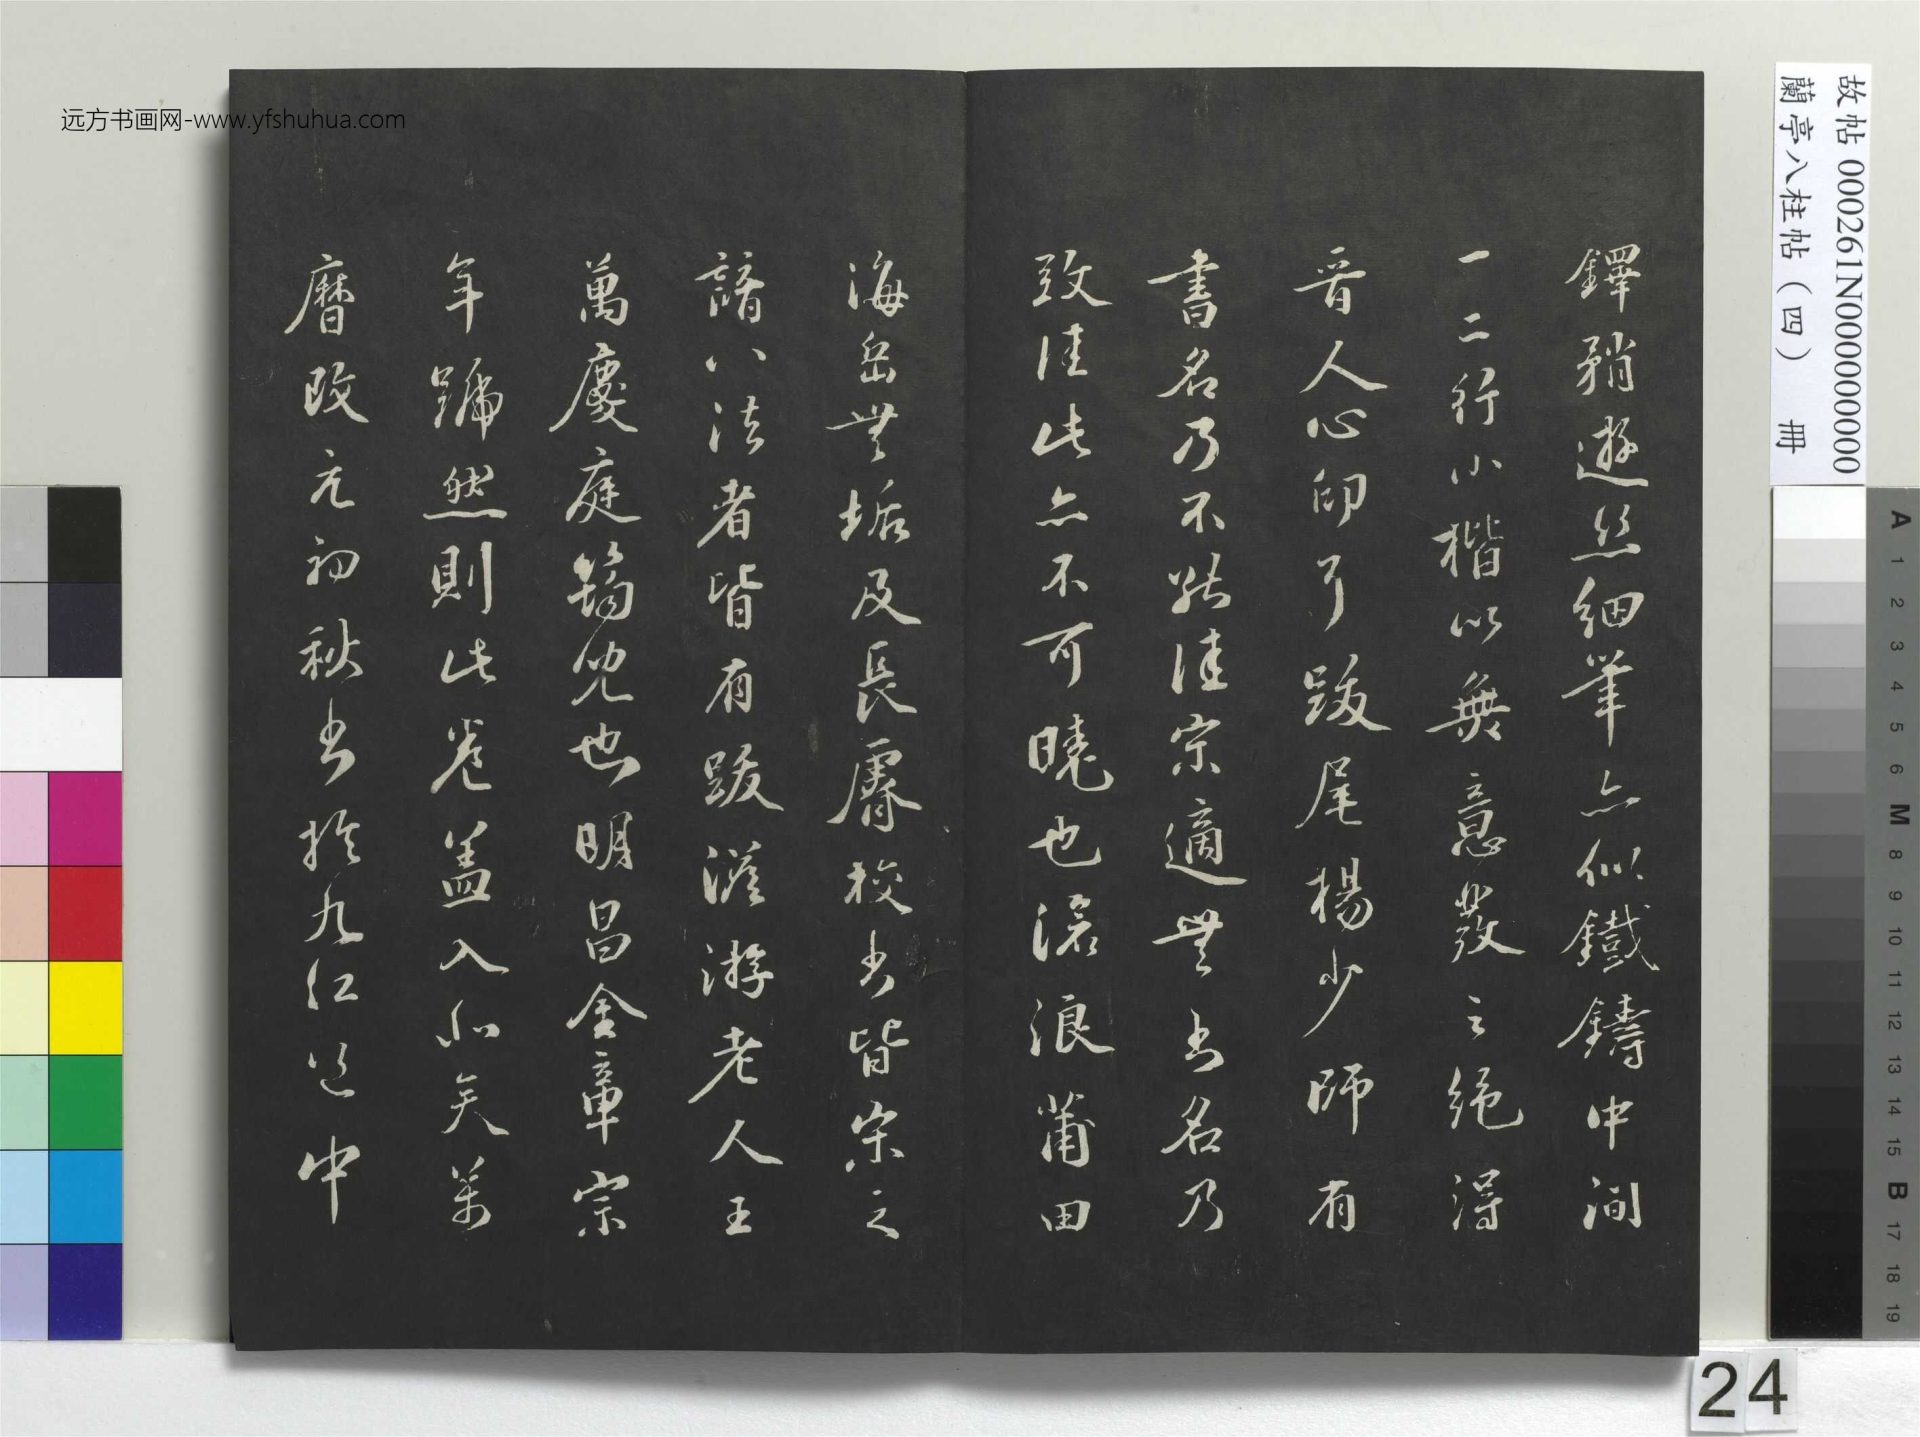 远方书画网-www.yfshuhua.com
故帖 000261N000000000
蘭亭八柱帖（四） 冊
鐸矟遊絲細筆亦似鐵鑄中間
一二行小楷以無意發之絕得
晉人心印了跋尾楊少師有
書名乃不能佳宗適無書名乃
致佳此亦不可曉也滄浪莆田
海岳無垢及長睿校書皆宋之
諳八法者皆有跋澹游老人王
萬慶庭筠兒也明昌金章宗
年號然則此卷蓋入北矣萬
曆改元初秋書於九江道中
A 1 2 3 4 5 6 M 8 9 10 11 12 13 14 15 B 17 18 19
24